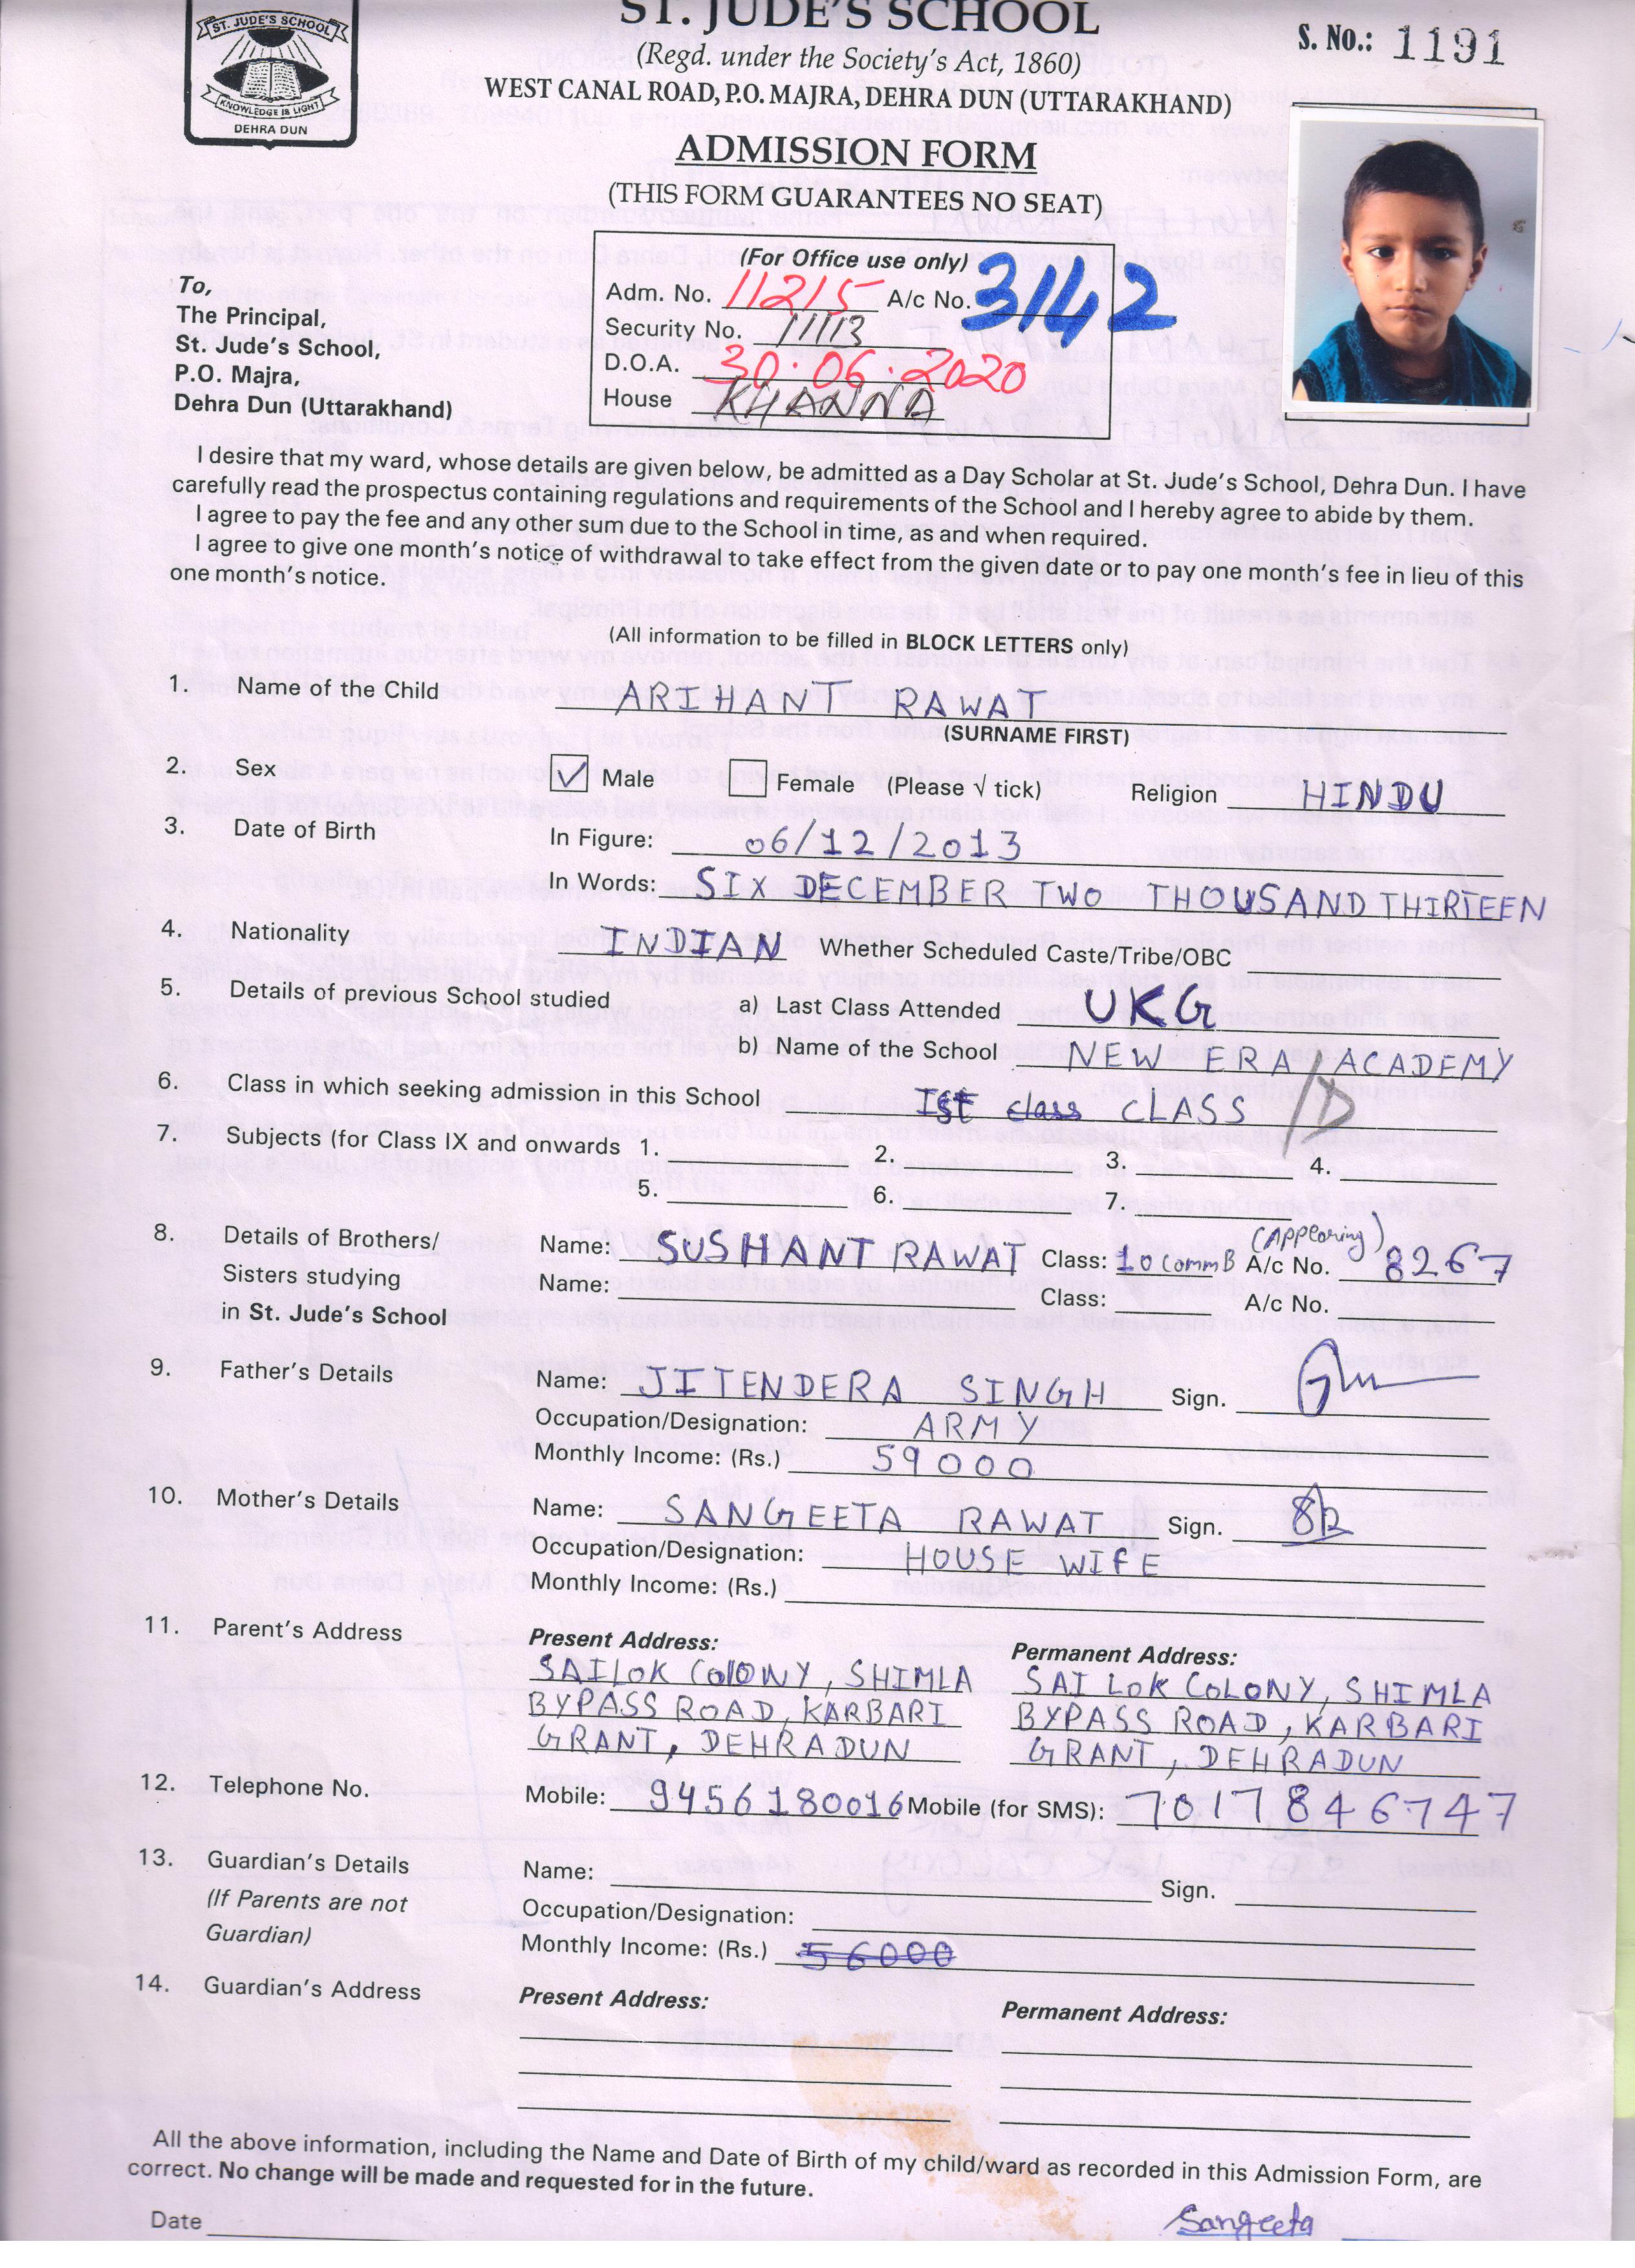 ST. JUDE'S SCHOOL
KNOWLEDGE IS LIGHT
DEHRA DUN
ST. JUDE'S SCHOOL
(Regd. under the Society's Act, 1860)
WEST CANAL ROAD, P.O. MAJRA, DEHRA DUN (UTTARAKHAND)
S. No.: 1191
ADMISSION FORM
(THIS FORM GUARANTEES NO SEAT)
(For Office use only)
Adm. No. 11215 A/c No. 3142
Security No. 11113
D.O.A. 30.06.2020
House KHANNA
To,
The Principal,
St. Jude's School,
P.O. Majra,
Dehra Dun (Uttarakhand)
I desire that my ward, whose details are given below, be admitted as a Day Scholar at St. Jude's School, Dehra Dun. I have
carefully read the prospectus containing regulations and requirements of the School and I hereby agree to abide by them.
I agree to pay the fee and any other sum due to the School in time, as and when required.
I agree to give one month's notice of withdrawal to take effect from the given date or to pay one month's fee in lieu of this
one month's notice.
(All information to be filled in BLOCK LETTERS only)
1. Name of the Child ARIHANT RAWAT
(SURNAME FIRST)
2. Sex Male Female (Please √ tick) Religion HINDU
3. Date of Birth In Figure: 06/12/2013
In Words: SIX DECEMBER TWO THOUSAND THIRTEEN
4. Nationality INDIAN Whether Scheduled Caste/Tribe/OBC
5. Details of previous School studied a) Last Class Attended UKG
b) Name of the School NEW ERA ACADEMY
6. Class in which seeking admission in this School Ist class CLASS 1/D
7. Subjects (for Class IX and onwards 1. 2. 3. 4.
5. 6. 7.
8. Details of Brothers/ Name: SUSHANT RAWAT Class: 10 comm B (Appearing) A/c No. 8267
Sisters studying Name: Class: A/c No.
in St. Jude's School
9. Father's Details Name: JITENDERA SINGH Sign.
Occupation/Designation: ARMY
Monthly Income: (Rs.) 59000
10. Mother's Details Name: SANGEETA RAWAT Sign.
Occupation/Designation: HOUSE WIFE
Monthly Income: (Rs.)
11. Parent's Address Present Address: Permanent Address:
SAILOK COLONY, SHIMLA SAI LOK COLONY, SHIMLA
BYPASS ROAD, KARBARI BYPASS ROAD, KARBARI
GRANT, DEHRADUN GRANT, DEHRADUN
12. Telephone No. Mobile: 9456180016 Mobile (for SMS): 7017846747
13. Guardian's Details Name: Sign.
(If Parents are not Occupation/Designation:
Guardian) Monthly Income: (Rs.) 56000
14. Guardian's Address Present Address: Permanent Address:
All the above information, including the Name and Date of Birth of my child/ward as recorded in this Admission Form, are
correct. No change will be made and requested for in the future.
Date Sangeeta